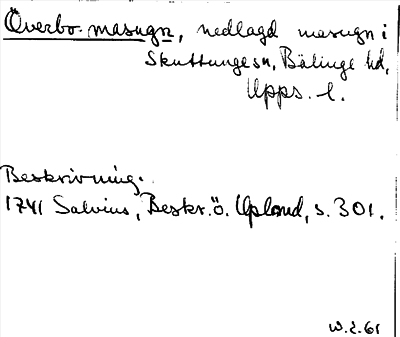 Överbo masugn, nedlagd masugn i
Skuttunge sn, Bälinge hd,
Upps. l.
Beskrivning.
1741 Salvius, Beskr. ö. Upland, s. 301.
W.Z. 61